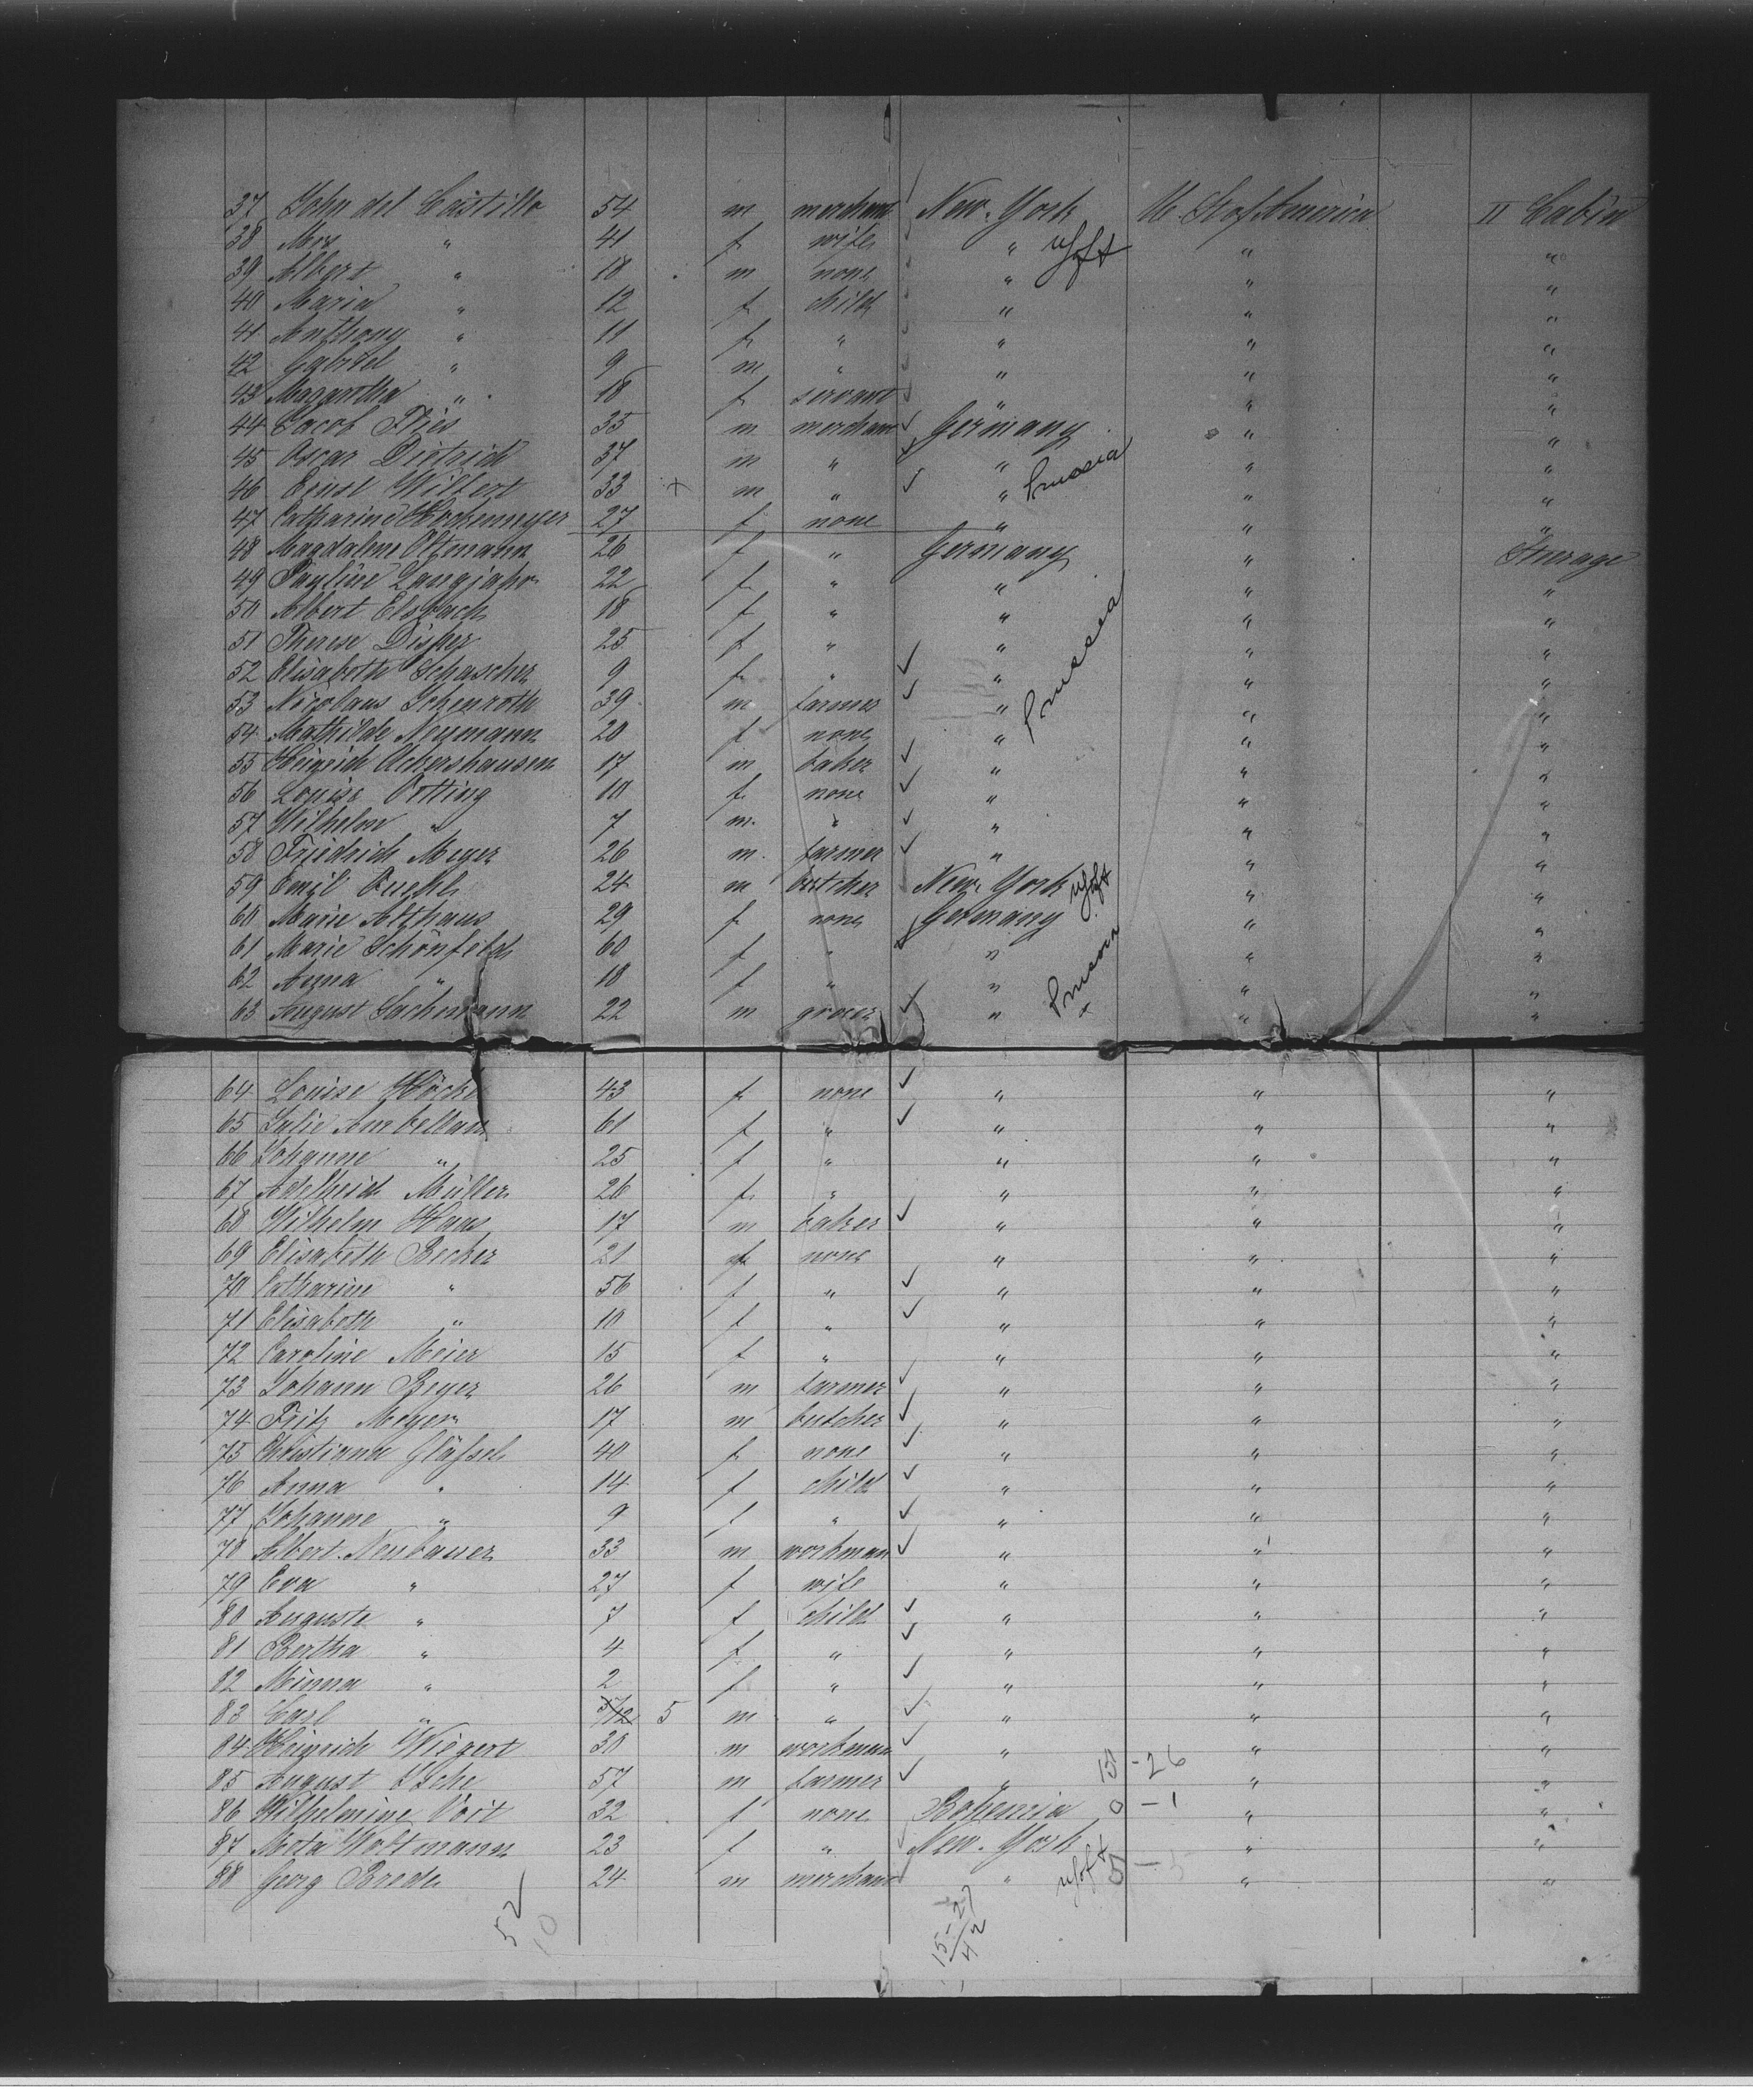 37 John del Castillo 54 m merchant New-York U. S. of America II Cabin
38 Mrs " 41 f wife " " "
39 Albert " 18 m none " " "
40 Maria " 12 f child " " "
41 Anthony " 11 f " " " "
42 Gabriel " 9 m " " " "
43 Margaretha " 18 f servant " " "
44 Jacob Fries 35 m merchant Germany " "
45 Oscar Dietrich 37 m " " " "
46 Ernst Wilfert 33 + m " " Prussia " "
47 Catharine Hockemeyer 27 f none " " "
48 Magdalene Oltmann 26 f " Germany " Steerage
49 Pauline Langjahr 22 f " " " "
50 Albert Elsbach 18 f " " " "
51 Therese Disper 25 f " " " "
52 Elisabeth Schascher 9 f " " " "
53 Nicolaus Ickenroth 39 m farmer " Prussia " "
54 Mathilde Neymann 20 f none " " "
55 Heinrich Ackershausen 17 m baker " " "
56 Louise Otting 10 f none " " "
57 Wilhelm " 7 m " " " "
58 Friedrich Meyer 26 m farmer " " "
59 Emil Buehl 24 m butcher New-York " "
60 Marie Althaus 29 f none Germany " "
61 Marie Schönfeld 60 f " " " "
62 Anna " 18 f " " Prussia " "
63 August Lachmann 22 m grocer " + " "
64 Louise Höcke 43 f none " " "
65 Julie Ambellan 61 f " " " "
66 Johanne " 25 f " " " "
67 Adelheid Müller 26 f " " " "
68 Wilhelm Haas 17 m baker " " "
69 Elisabeth Becker 21 f none " " "
70 Catharine " 56 f " " " "
71 Elisabeth " 10 f " " " "
72 Caroline Meier 15 f " " " "
73 Johann Beyer 26 m farmer " " "
74 Fritz Meyer 17 m butcher " " "
75 Christiana Gläfsel 40 f none " " "
76 Anna " 14 f child " " "
77 Johanne " 9 f " " " "
78 Albert Neubauer 33 m workman " " "
79 Eva " 27 f wife " " "
80 Auguste " 7 f child " " "
81 Bertha " 4 f " " " "
82 Minna " 2 f " " " "
83 Carl " 5/12 5 m " " " "
84 Heinrich Wiegert 30 m workman " " "
85 August Ische 57 m farmer " 15 - 26 " "
86 Wilhelmine Voit 32 f none Bohemia 0 - 1 " "
87 Meta Woltmann 23 f " New-York " "
88 Georg Brede 24 m merchant " 5 - 5 " "
52
10
15-27
42